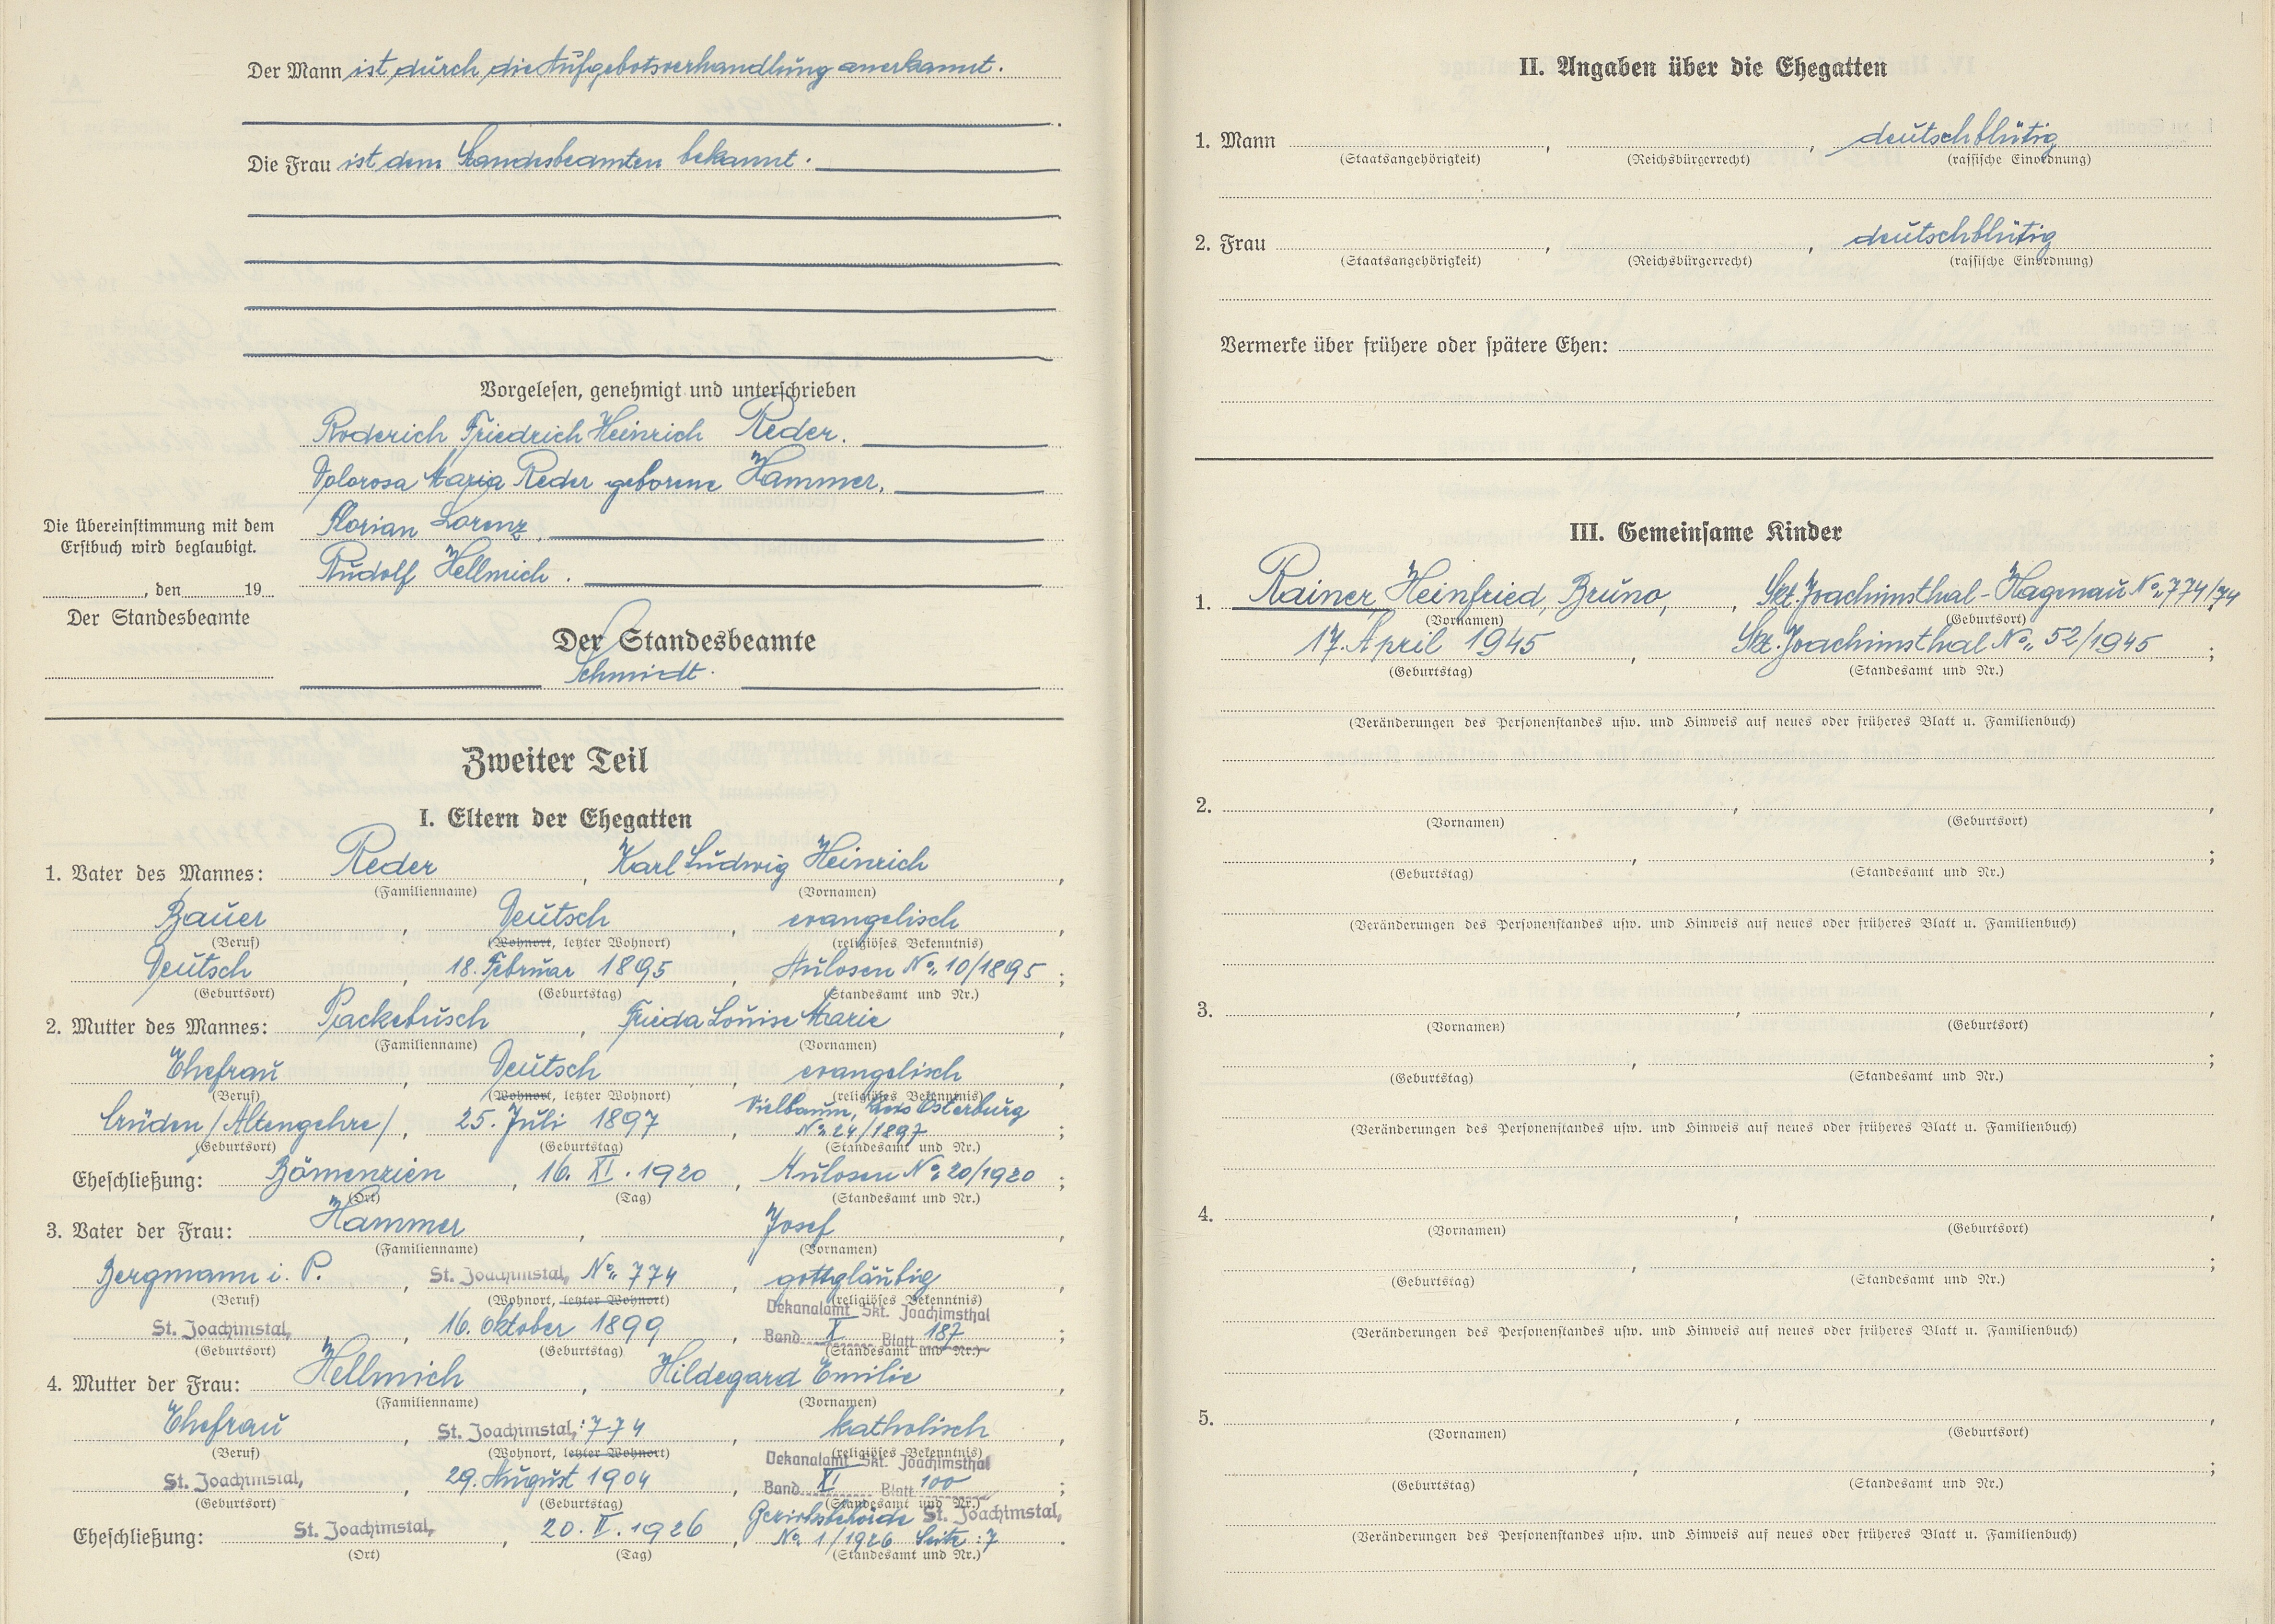 Der Mann ist durch die Aufgebotsverhandlung anerkannt.
Die Frau ist dem Standesbeamten bekannt.
Vorgelesen, genehmigt und unterschrieben
Roderich Friedrich Heinrich Reder.
Dolorosa Maria Reder geborene Hammer.
Florian Lorenz.
Rudolf Hellmich.
Die Übereinstimmung mit dem
Erstbuch wird beglaubigt.
, den 19
Der Standesbeamte
Der Standesbeamte
Schmidt.
Zweiter Teil
I. Eltern der Ehegatten
1. Vater des Mannes: Reder, Karl Ludwig Heinrich,
(Familienname) (Vornamen)
Bauer, Deutsch, evangelisch,
(Beruf) (Wohnort, letzter Wohnort) (religiöses Bekenntnis)
Deutsch, 18. Februar 1895, Aulosen No. 10/1895;
(Geburtsort) (Geburtstag) (Standesamt und Nr.)
2. Mutter des Mannes: Packebusch, Frieda Louise Marie,
(Familienname) (Vornamen)
Ehefrau, Deutsch, evangelisch,
(Beruf) (Wohnort, letzter Wohnort) (religiöses Bekenntnis)
Crüden /Altengehre/, 25. Juli 1897, Vielbaum, Kreis Osterburg
No. 24/1897;
(Geburtsort) (Geburtstag) (Standesamt und Nr.)
Eheschließung: Bömenzien, 16. XI. 1920, Aulosen No. 20/1920;
(Ort) (Tag) (Standesamt und Nr.)
3. Vater der Frau: Hammer, Josef,
(Familienname) (Vornamen)
Bergmann i. P., St. Joachimstal, No. 774, gottgläubig,
(Beruf) (Wohnort, letzter Wohnort) (religiöses Bekenntnis)
Dekanalamt Skt. Joachimsthal
St. Joachimstal, 16. Oktober 1899, Band X Blatt 187;
(Geburtsort) (Geburtstag) (Standesamt und Nr.)
4. Mutter der Frau: Hellmich, Hildegard Emilie,
(Familienname) (Vornamen)
Ehefrau, St. Joachimstal, : 774, katholisch,
(Beruf) (Wohnort, letzter Wohnort) (religiöses Bekenntnis)
Dekanalamt Skt. Joachimsthal
St. Joachimstal, 29. August 1904, Band XI Blatt 100;
(Geburtsort) (Geburtstag) (Standesamt und Nr.)
St. Joachimstal,
Eheschließung: St. Joachimstal, 20. II. 1926, No. 1/1926 Seite: 7.
(Ort) (Tag) (Standesamt und Nr.)
II. Angaben über die Ehegatten
1. Mann , , deutschblütig
(Staatsangehörigkeit) (Reichsbürgerrecht) (rassische Einordnung)
2. Frau , , deutschblütig
(Staatsangehörigkeit) (Reichsbürgerrecht) (rassische Einordnung)
Vermerke über frühere oder spätere Ehen:
III. Gemeinsame Kinder
1. Rainer, Heinfried, Bruno, , Skt. Joachimsthal-Hagenau No. 774/74
(Vornamen) (Geburtsort)
17. April 1945, Skt. Joachimsthal No. 52/1945;
(Geburtstag) (Standesamt und Nr.)
(Veränderungen des Personenstandes usw. und Hinweis auf neues oder früheres Blatt u. Familienbuch)
2. , ,
(Vornamen) (Geburtsort)
, ;
(Geburtstag) (Standesamt und Nr.)
(Veränderungen des Personenstandes usw. und Hinweis auf neues oder früheres Blatt u. Familienbuch)
3. , ,
(Vornamen) (Geburtsort)
, ;
(Geburtstag) (Standesamt und Nr.)
(Veränderungen des Personenstandes usw. und Hinweis auf neues oder früheres Blatt u. Familienbuch)
4. , ,
(Vornamen) (Geburtsort)
, ;
(Geburtstag) (Standesamt und Nr.)
(Veränderungen des Personenstandes usw. und Hinweis auf neues oder früheres Blatt u. Familienbuch)
5. , ,
(Vornamen) (Geburtsort)
, ;
(Geburtstag) (Standesamt und Nr.)
(Veränderungen des Personenstandes usw. und Hinweis auf neues oder früheres Blatt u. Familienbuch)